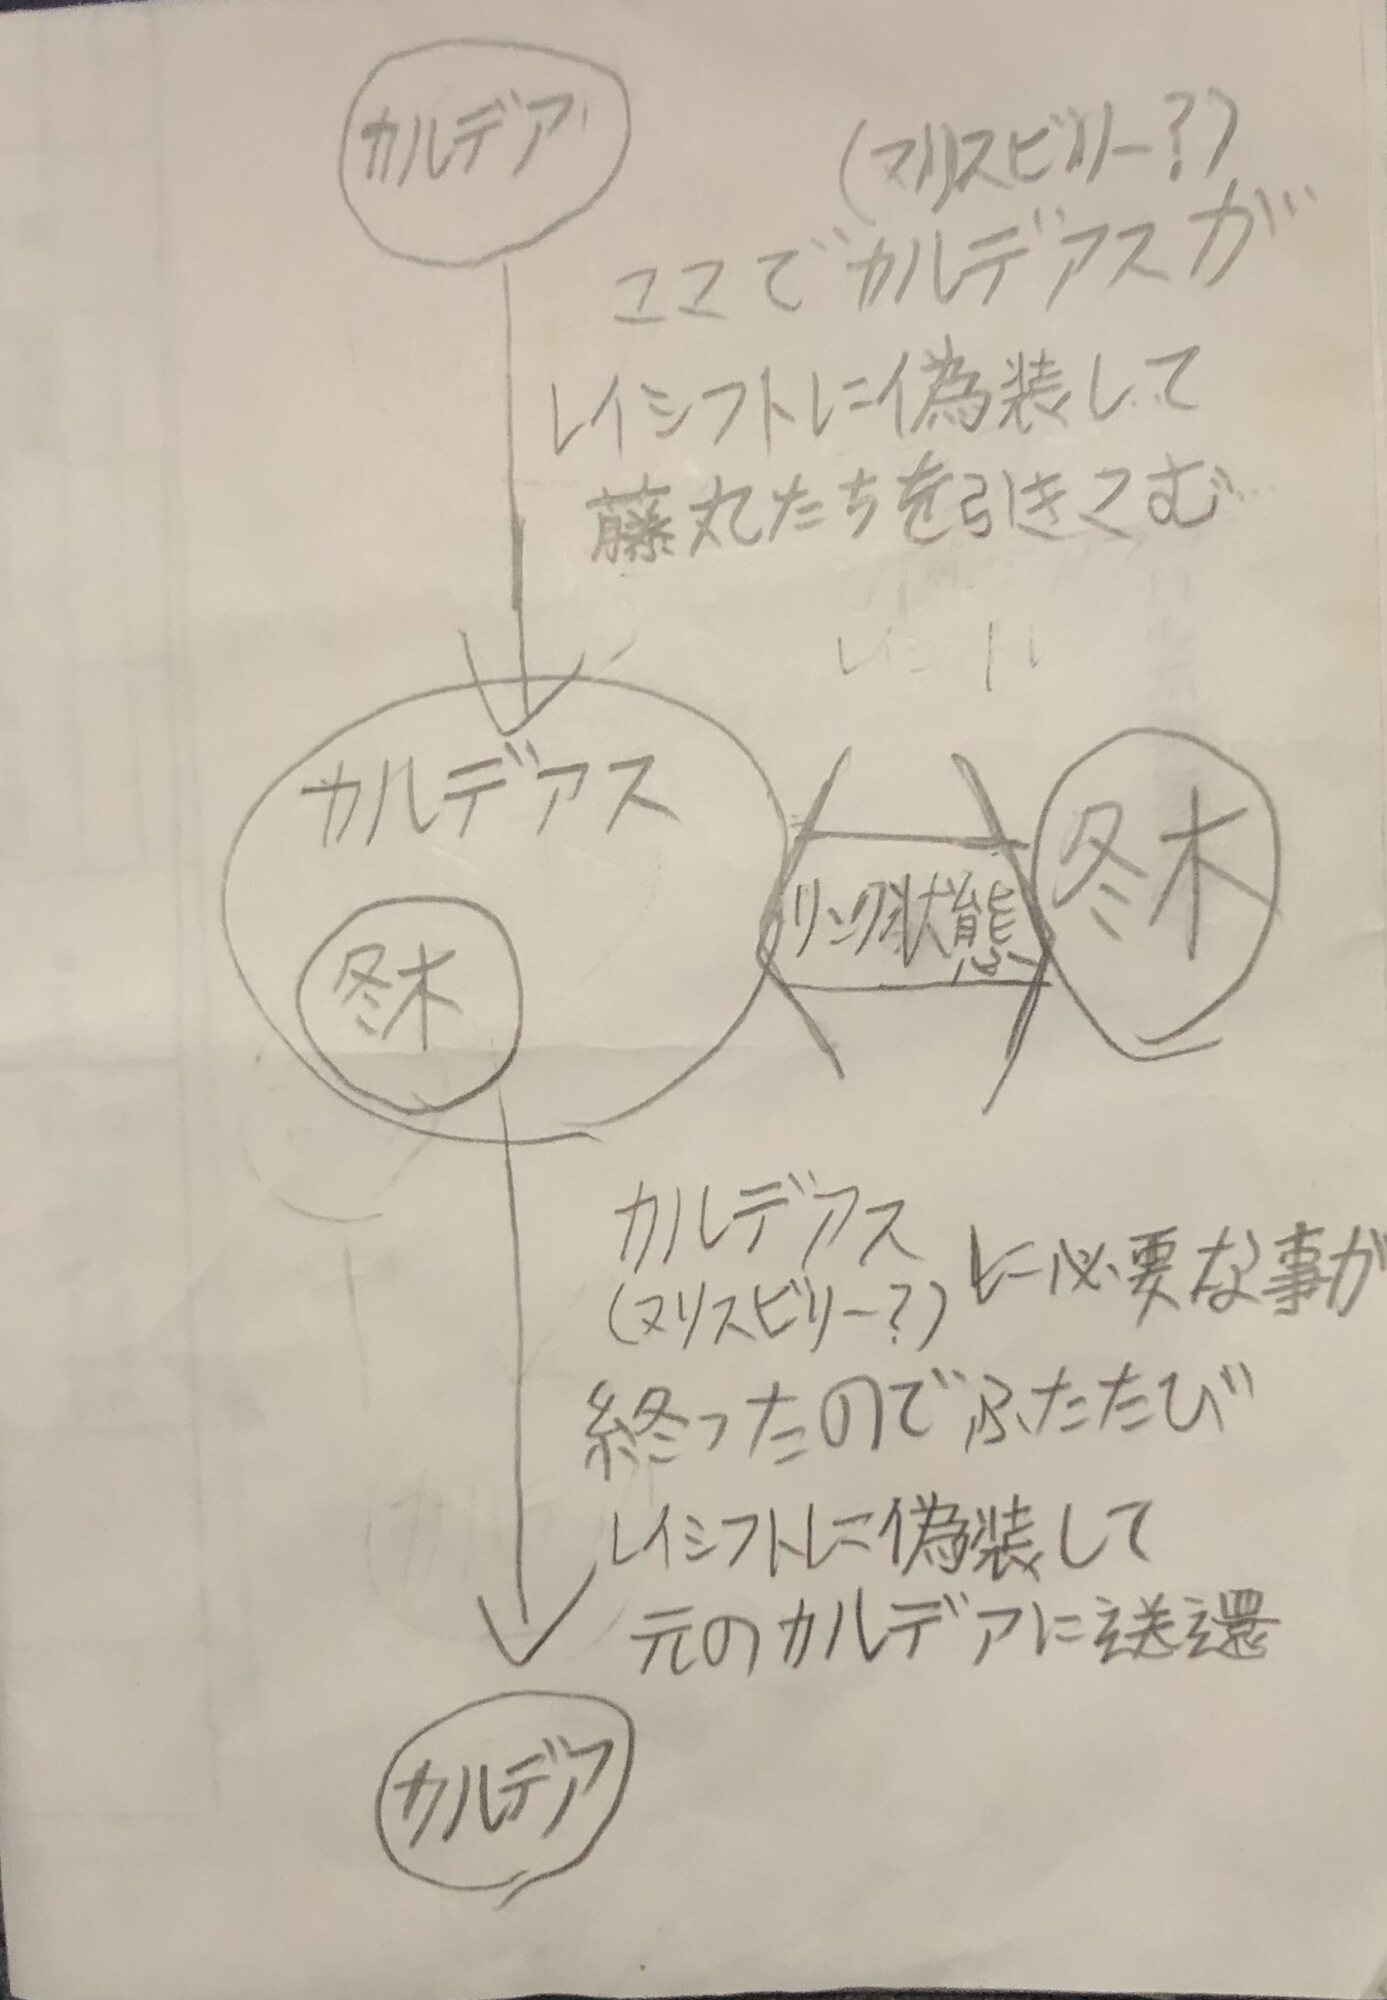 カルデア
(マリスビリー?)
ココでカルデアスが
レイシフトに偽装して
藤丸たちを引きこむ
カルデアス
冬木
リンク状態
冬木
カルデアス
(マリスビリー?)
に必要な事が
終ったのでふたたび
レイシフトに偽装して
元のカルデアに送還
カルデア